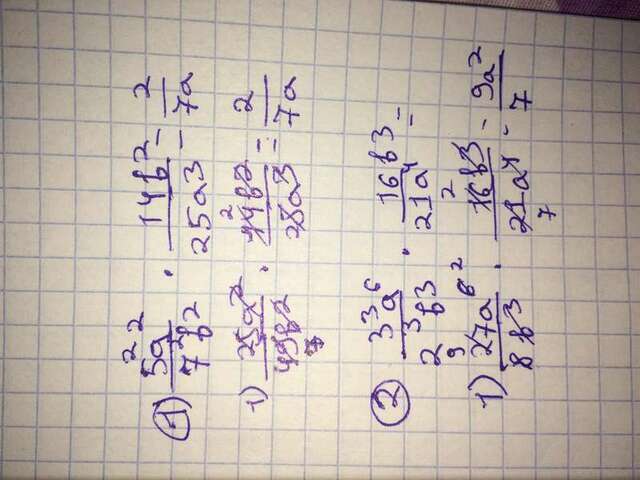 1) 5²a²/7²b² · 14b²/25a³ = 2/7a
1) 25a²/49b² · 14b²/25a³ = 2/7a
7 2
2 3³a⁶/2³b³ · 16b³/21a⁴ =
1) 27a⁶/8b³ · 16b³/21a⁴ = 9a²/7
9 2 2 7